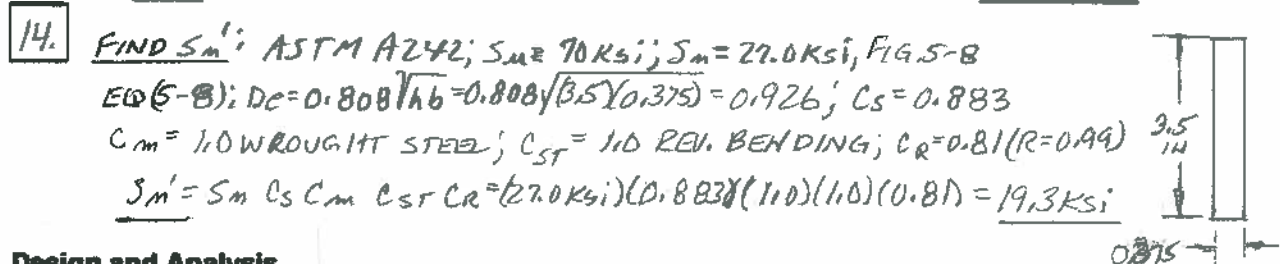 14. FIND Sn': ASTM A242; Su = 70 Ksi; Sn = 27.0 Ksi, FIG. 5-8
EQ(5-8): De = 0.808√hb = 0.808√(3.5)(0.375) = 0.926; Cs = 0.883
Cm = 1.0 WROUGHT STEEL; CST = 1.0 REV. BENDING; CR = 0.81 (R=0.99)
Sn' = Sn Cs Cm CST CR = (27.0 Ksi)(0.883)(1.0)(1.0)(0.81) = 19.3 Ksi
3.5
IN
0.375
Design and Analysis